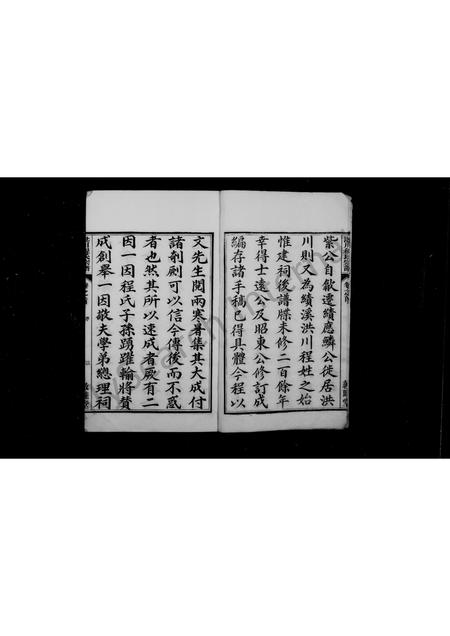 紫公自歙遷績應麟公徙居洪
川則又為績溪洪川程姓之始
惟建祠後譜牒未修二百餘年
幸得士遠公及昭東公修訂成
編存諸手稿已得具體今程以
文先生閱兩寒暑集其大成付
諸剞劂可以信今傳後而不惑
者也然其所以速成者厥有二
因一因程氏子孫踴躍輸將贊
成創舉一因敬夫學弟總理祠